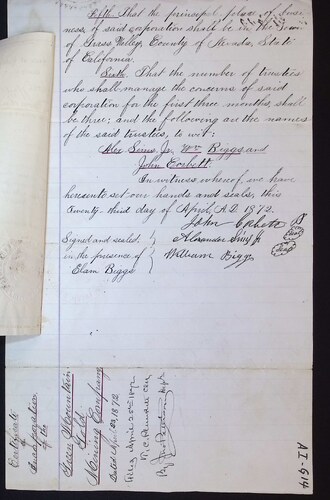 Fifth. That the principal place of busi-
ness of said corporation shall be in the Town
of Grass Valley, County of Nevada, State
of California.
Sixth. That the number of trustees
who shall manage the concerns of said
corporation for the first three months shall
be three; and the following are the names
of the said trustees, to wit:
Alex Sims Jr, Wm Biggs and
John Corbett
In witness whereof, we have
hereunto set our hands and seals, this
Twenty-third day of April, A.D. 1872.
John Corbett
Signed and sealed
Alexander Sims Jr
in the presence of
William Biggs
Elam Biggs
Certificate
of
Incorporation
of the
Mountain
Gold
Mining Company
Dated April 23, 1872.
Filed April 25th 1872
Clk
By
AI-614